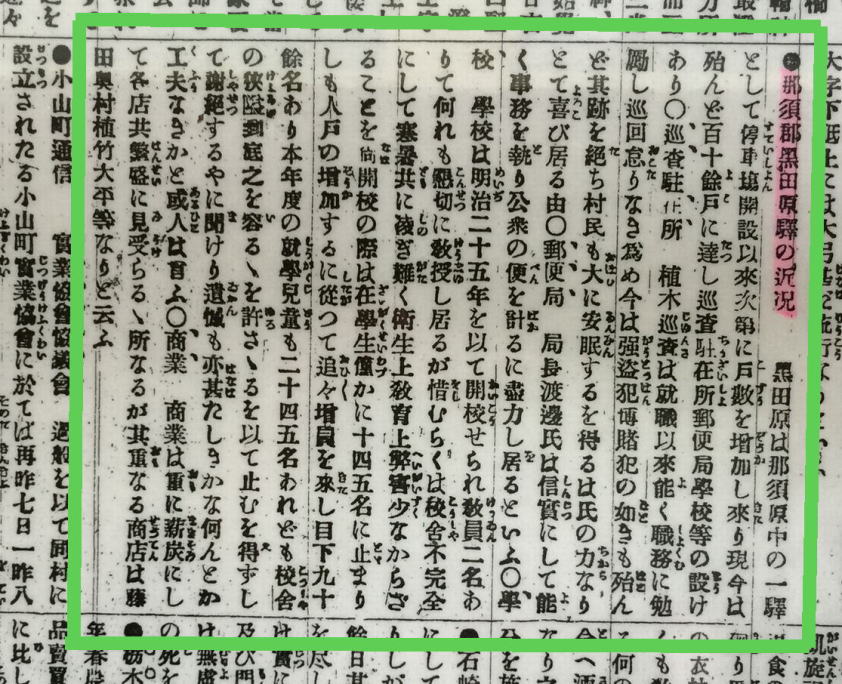 ●那須郡黒田原驛の近况　黒田原は那須原中の一驛
として停車塲開設以來次第に戸數を增加し來り現今は
殆んど百十餘戸に達し巡査駐在所郵便局學校等の設け
あり○巡査駐在所　植木巡査は就職以來能く職務に勉
勵し巡回怠りなき爲め今は强盗犯博賭犯の如きも殆ん
ど其跡を絕ち村民も大に安眠するを得るは氏の力なり
とて喜び居る由○郵便局　局長渡邊氏は信實にして能
く事務を執り公衆の便を計るに盡力し居るといふ○學
校　學校は明治二十五年を以て開校せられ敎員二名あ
りて何れも懇切に敎授し居るが惜むらくは校舍不完全
にして寒暑共に凌ぎ難く衛生上敎育上弊害少なからざ
ることを尙開校の際は在學生僅かに十四五名に止まり
しも人戸の增加するに從つて追々增員を來し目下九十
餘名あり本年度の就學兒童も二十四五名あれども校舍
の狹隘到底之を容るゝを許さゝるを以て止むを得ずし
て謝絕するやに聞けり遺憾も亦甚たしきかな何んとか
工夫なきかと或人は言ふ○商業　商業は重に薪炭にし
て各店共繁盛に見受らるゝ所なるが其重なる商店は藤
田奥村植竹大平等なりと云ふ
●小山町通信　實業協會協議會　過般を以て同村に
設立されたる小山町實業協會に於ては再昨七日一昨八